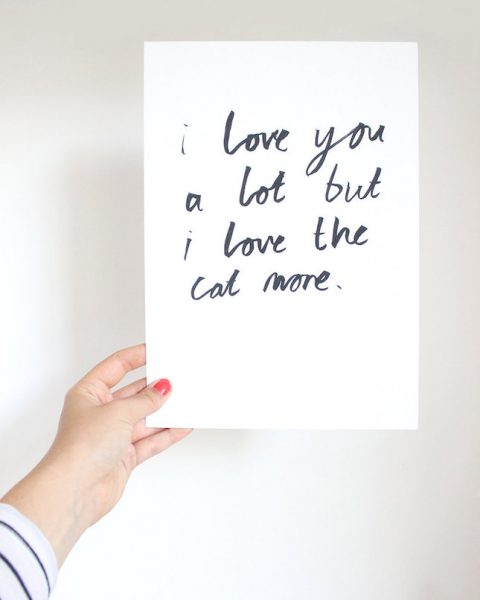 i love you
a lot but
i love the
cat more.